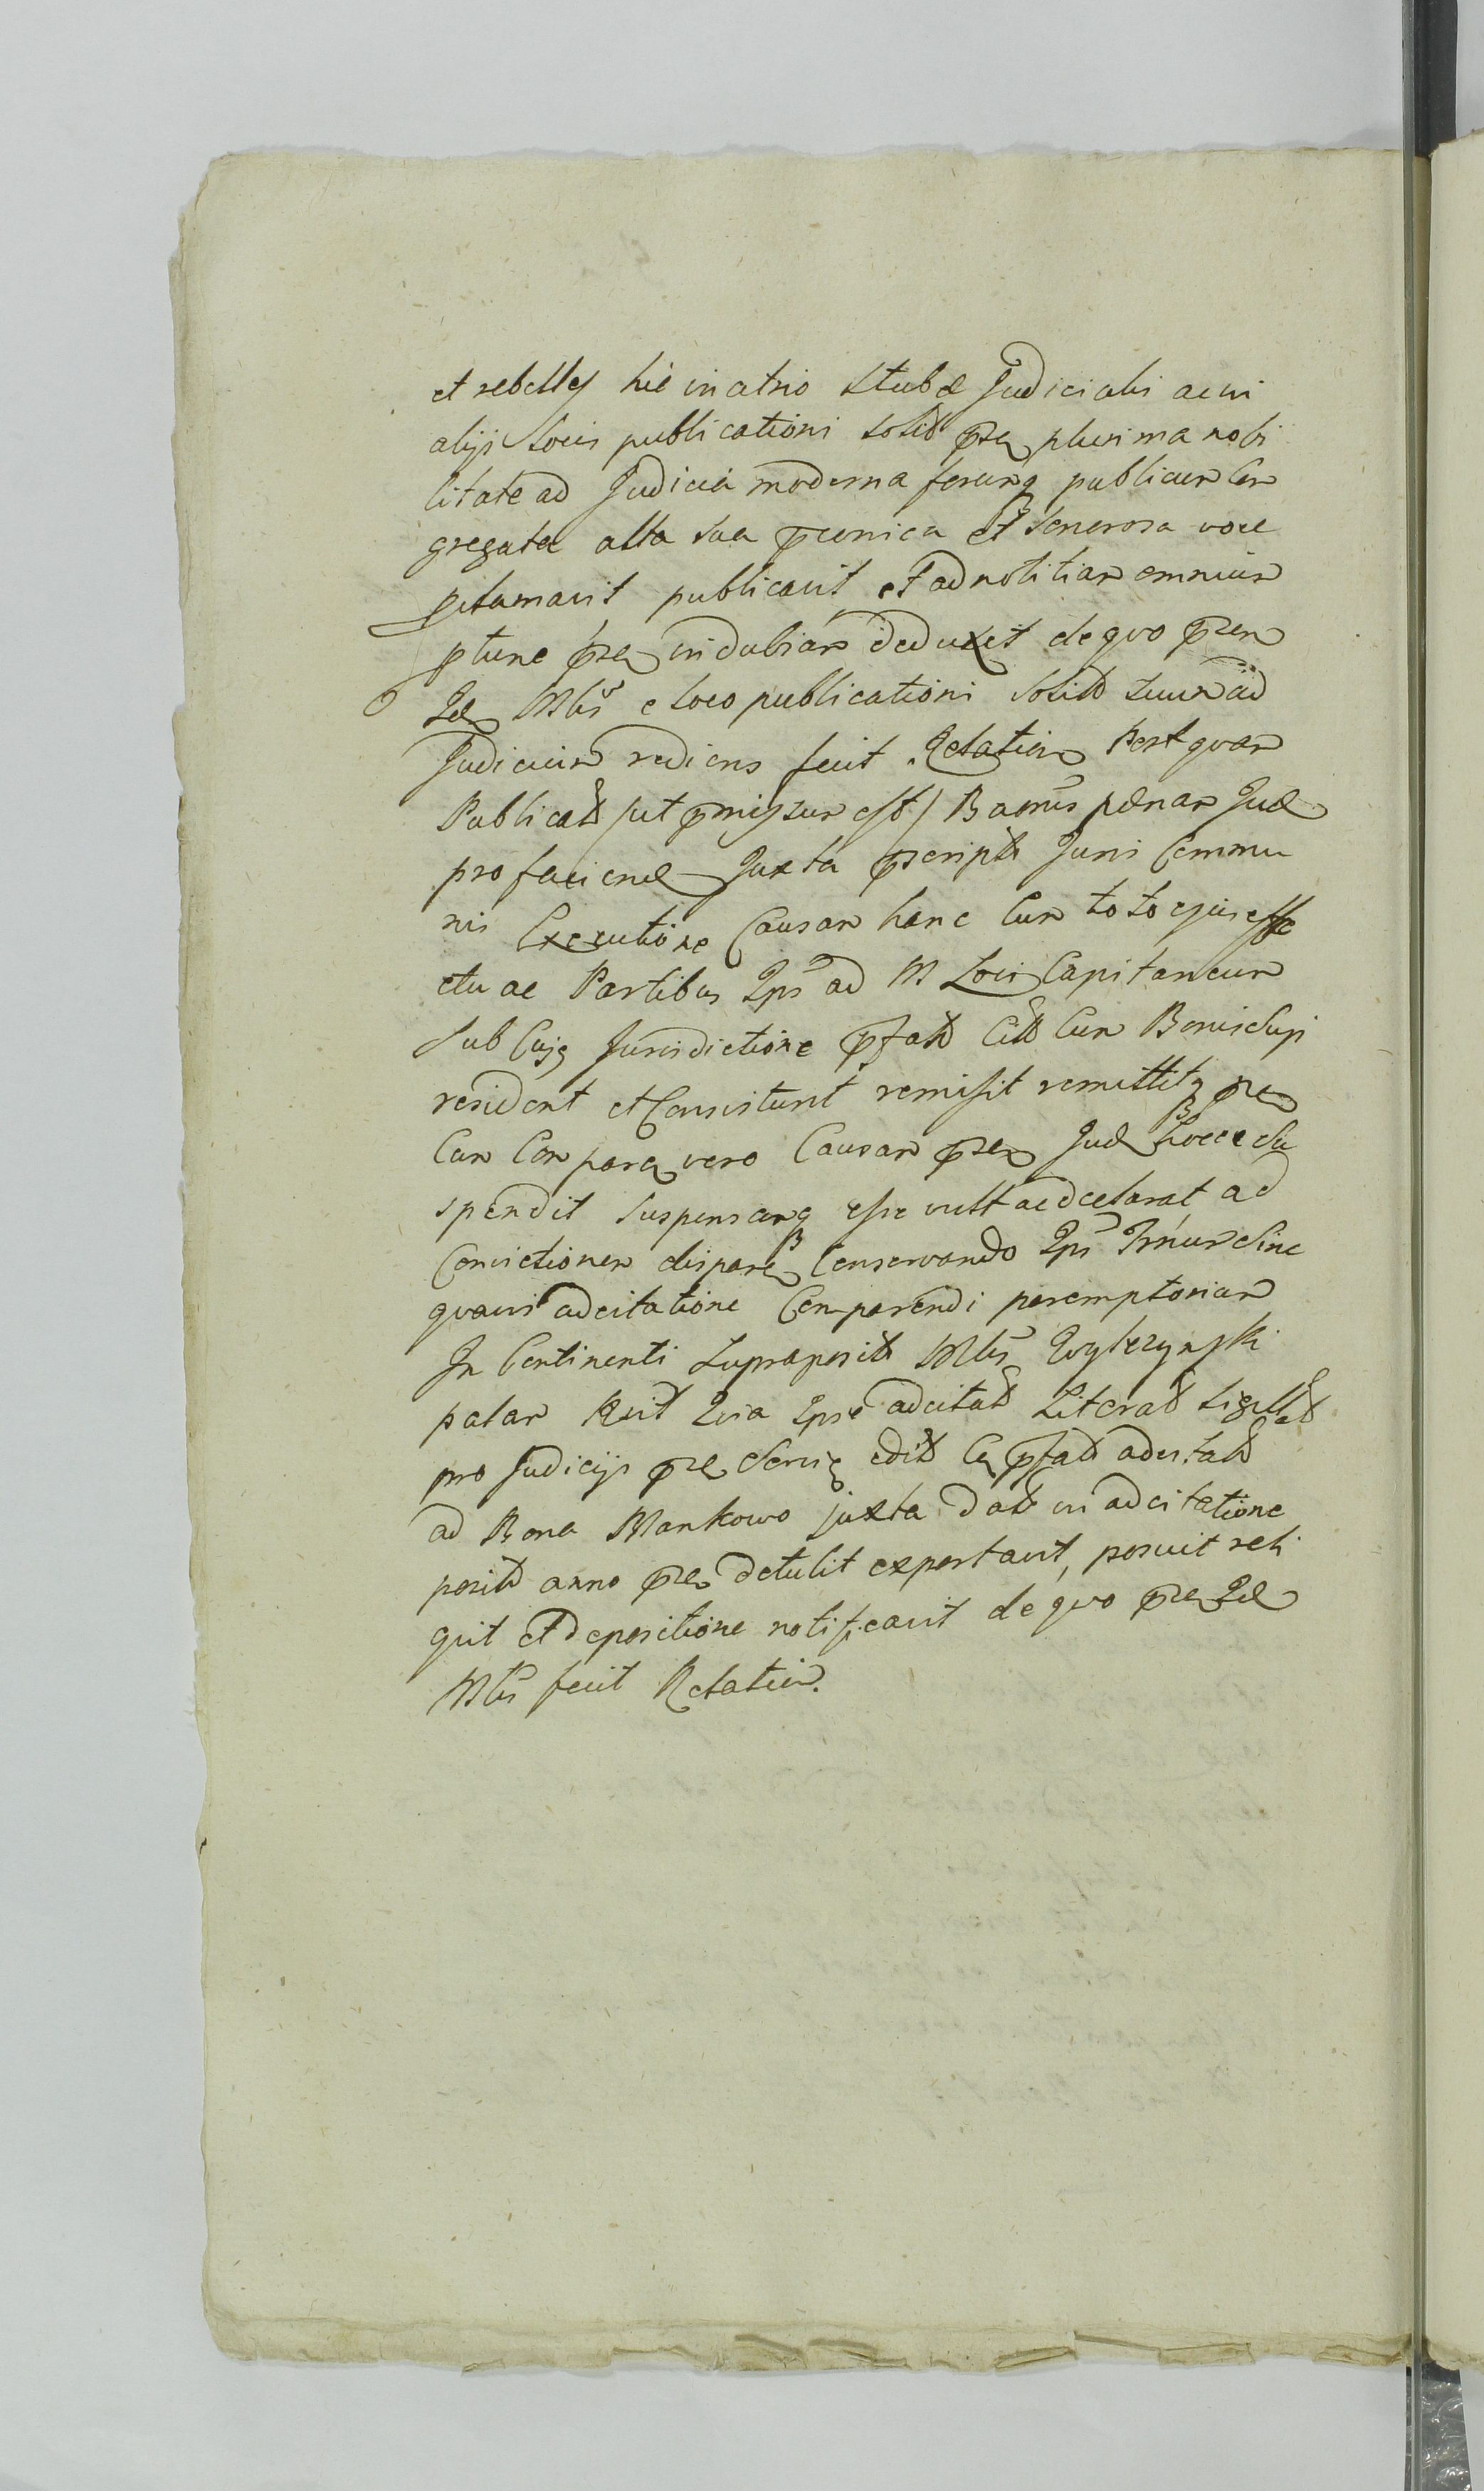 et rebelles hic in atrio Stubæ Judicialis ac in
alijs Locis publicationi solit pñ plurima nobi
litate ad Judicia moderna forumq publicum Con
gregata alta sua præconica et Sonorosa voce
proclamavit publicavit et ad notitiam omnium
ptunc pñ indubiam deduxit de quo pñ
Idem Mlis e loco publicationi solit suum ad
Judicium rediens fecit Relatiom Postquam
Publicat /ut pmissum est/ Banns pœnam Jud
pro facienđ Juxta pscripta Juris Commu
nis Executione Causam hanc Cum toto ejus effe
ctu ac Partibus Ips ad M Loci Capitaneum
sub Cujq Jurisdictione pfat Cit Cum Bonis Suis
resident et Consistunt remisit remittitq pñ
Cum Compare vero Causam pñ Jud hocce Su
spendit suspensamq esse vult ac declarat ad
Convictionem dispare Conservando Ips Trnum Sine
quavis adcitatione Comparendi peremptorium
In Continenti Supraposit Mlis Zwylczynski
palam Rcit Quia Ipse adcitat Literat sigillat
pro Judicijs pñ Servi edit Cu pfat adcitat
ad Bona Mankowo juxta dat in adcitatione
posit anno pñ detulit exportavit, posuit reli
quit et depositione notificavit de quo pñ Idem
Mlis fecit Relatiom.